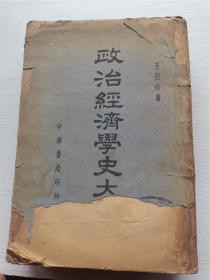 王亞南著
政治經濟學史大
中華書局印行